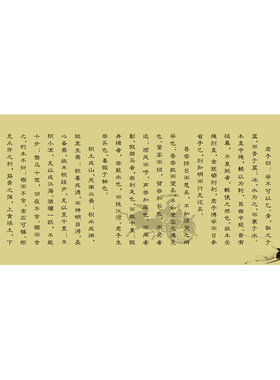 君子曰:学不可以已。青,取之于
蓝,※青于蓝;冰水为之,※寒于水。
木直中绳,輮以为轮,其曲中规。虽有
槁暴,不复挺者,輮使之然也。故木受
绳则直,金就砺则利,君子博学※日参
省乎己,则知明※行无过矣。
吾尝终日※思矣,不如须臾之所
学也;吾尝跂※望矣,不如登高之博见
也。登高※招,臂非加长也,※见者
远;顺风※呼,声非加疾也,※闻者
彰。假舆马者,非利足也,※致千里;假
舟楫者,非能水也,※绝江河。君子生
非异也,善假于物也。
积土成山,风雨兴焉;积水成渊,
蛟龙生焉;积善成德,※神明自得,圣
心备焉。故不积跬步,无以至千里;不
积小流,无以成江海。骐骥一跃,不能
十步;驽马十驾,功在不舍。锲※舍
之,朽木不折;锲※不舍,金石可镂。蚓
无爪牙之利,筋骨之强,上食埃土,下